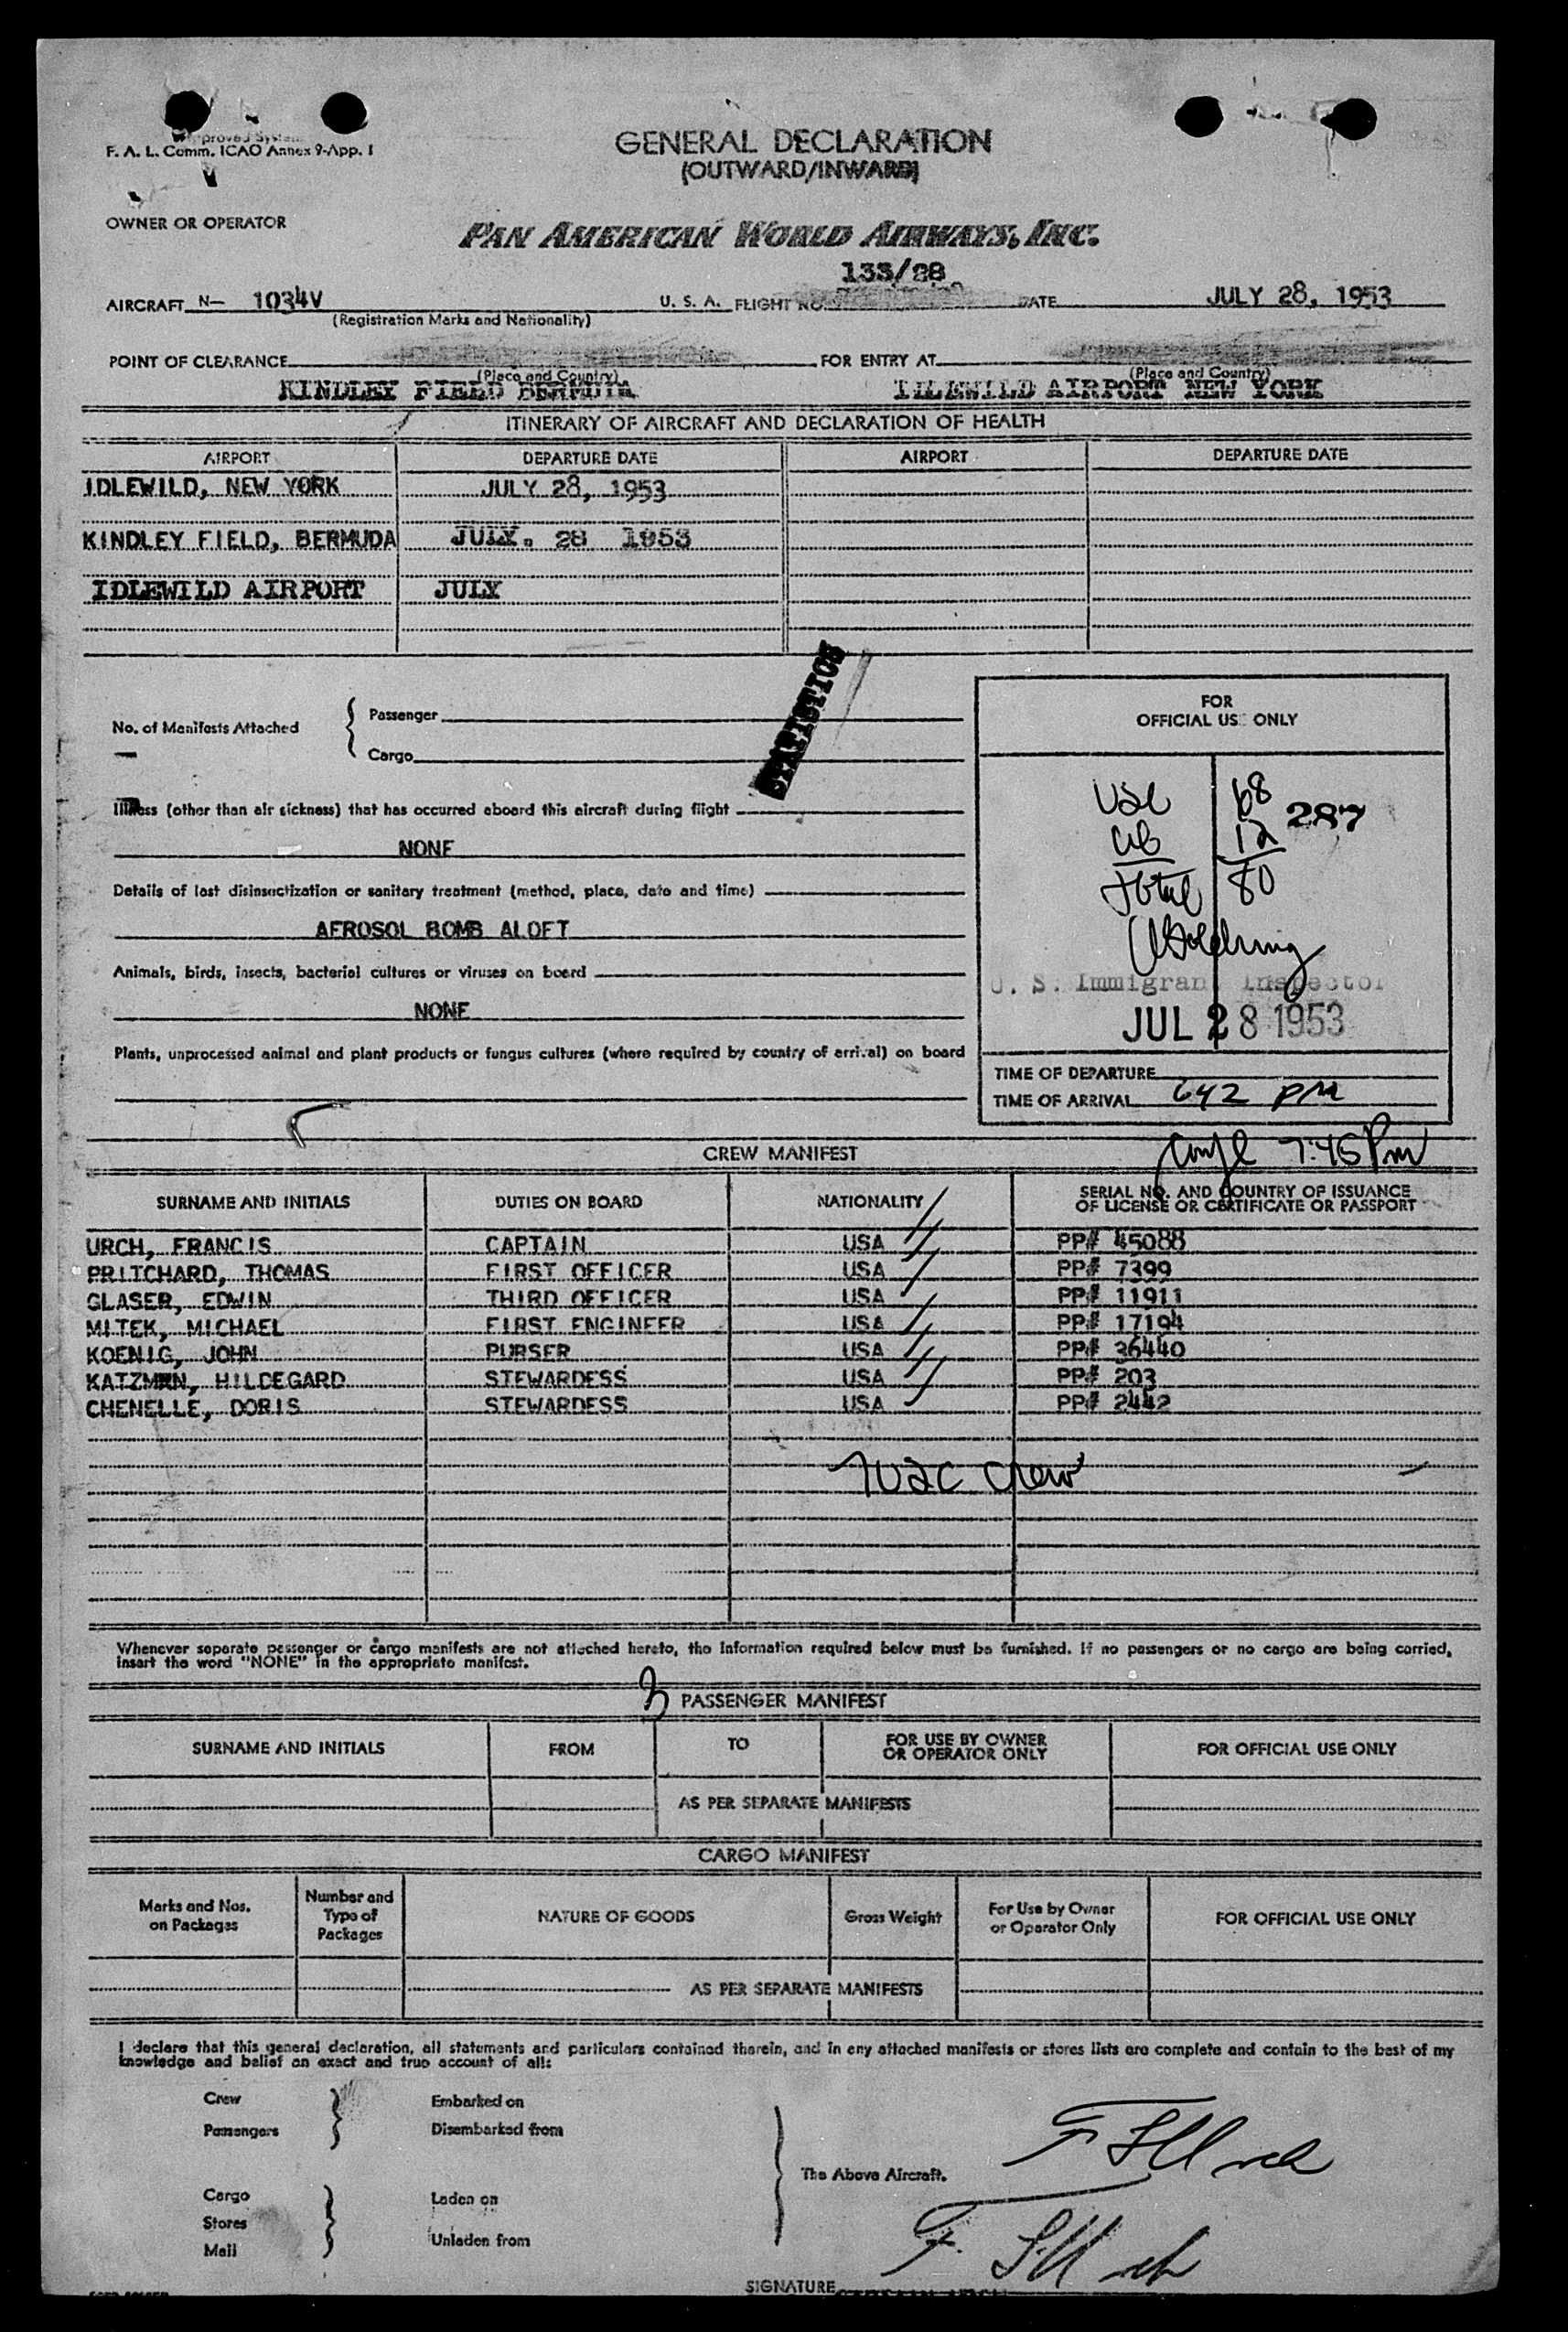 F. A. L. Comm. ICAO Annex 9-App. I
GENERAL DECLARATION
(OUTWARD/INWARD)
OWNER OR OPERATOR
PAN AMERICAN WORLD AIRWAYS, INC.
133/28
AIRCRAFT N- 1034V U. S. A. FLIGHT NO. DATE JULY 28, 1953
(Registration Marks and Nationality)
POINT OF CLEARANCE FOR ENTRY AT
(Place and Country) (Place and Country)
KINDLEY FIELD BERMUDA IDLEWILD AIRPORT NEW YORK
ITINERARY OF AIRCRAFT AND DECLARATION OF HEALTH
AIRPORT DEPARTURE DATE AIRPORT DEPARTURE DATE
IDLEWILD, NEW YORK JULY 28, 1953
KINDLEY FIELD, BERMUDA JULY. 28 1953
IDLEWILD AIRPORT JULY
STATISTICS
No. of Manifests Attached
Passenger
Cargo
FOR
OFFICIAL USE ONLY
USC 68
287
UB 12
Total 80
U. S. Immigrant Inspector
JUL 28 1953
TIME OF DEPARTURE
TIME OF ARRIVAL 642 PM
Compl 7:45 Pm
Illness (other than air sickness) that has occurred aboard this aircraft during flight
NONE
Details of last disinsectization or sanitary treatment (method, place, date and time)
AEROSOL BOMB ALOFT
Animals, birds, insects, bacterial cultures or viruses on board
NONE
Plants, unprocessed animal and plant products or fungus cultures (where required by country of arrival) on board
CREW MANIFEST
SURNAME AND INITIALS DUTIES ON BOARD NATIONALITY SERIAL NO. AND COUNTRY OF ISSUANCE
OF LICENSE OR CERTIFICATE OR PASSPORT
URCH, FRANCIS CAPTAIN USA PP# 45088
PRITCHARD, THOMAS FIRST OFFICER USA PP# 7399
GLASER, EDWIN THIRD OFFICER USA PP# 11911
MITEK, MICHAEL FIRST ENGINEER USA PP# 17194
KOENIG, JOHN PURSER USA PP# 36440
KATZMEN, HILDEGARD STEWARDESS USA PP# 203
CHENELLE, DORIS STEWARDESS USA PP# 2442
7 USC Crew
Whenever separate passenger or cargo manifests are not attached hereto, the information required below must be furnished. If no passengers or no cargo are being carried,
insert the word "NONE" in the appropriate manifest.
3 PASSENGER MANIFEST
SURNAME AND INITIALS FROM TO FOR USE BY OWNER
OR OPERATOR ONLY FOR OFFICIAL USE ONLY
AS PER SEPARATE MANIFESTS
CARGO MANIFEST
Marks and Nos.
on Packages
Number and
Type of
Packages
NATURE OF GOODS
Gross Weight
For Use by Owner
or Operator Only
FOR OFFICIAL USE ONLY
AS PER SEPARATE MANIFESTS
I declare that this general declaration, all statements and particulars contained therein, and in any attached manifests or stores lists are complete and contain to the best of my
knowledge and belief an exact and true account of all:
Crew Embarked on
Passengers Disembarked from
The Above Aircraft.
Cargo Laden on
Stores
Mail Unladen from
F S Urch
F. S. Urch
SIGNATURE